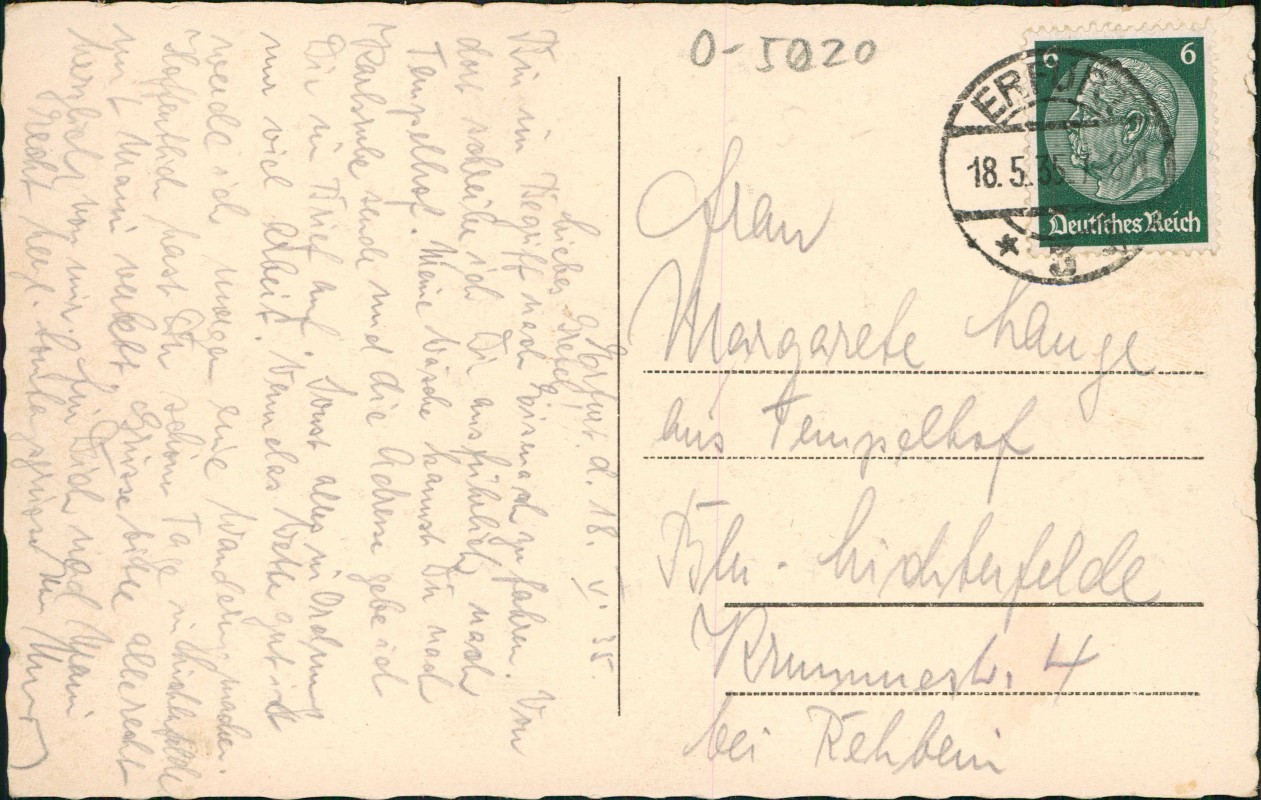 O-5020
ERFURT
18.5.35
3
6
6
Deutsches Reich
Frau
Margarete Lange
aus Tempelhof
Bln - Lichterfelde
Krummestr. 4
bei Rehbein
Erfurt. d. 18. V. 35
Liebes Gretel!
Bin im Begriff nach Eisenach zu fahren. Von
dort schreibe ich Dir ausführlich nach
Tempelhof. Meine Wäsche kannst Du nach
Karlsruhe senden und die Adresse gebe ich
Dir im Brief auf. Sonst alles in Ordnung
nur viel Arbeit. Wenn das Wetter gut ist
werde ich morgen eine Wanderung machen.
Hoffentlich hast Du schöne Tage in Lichterfelde
mit Mami verlebt. Grüsse bitte alle recht
herzlich von mir. Für Dich und Mami
Recht herzl.